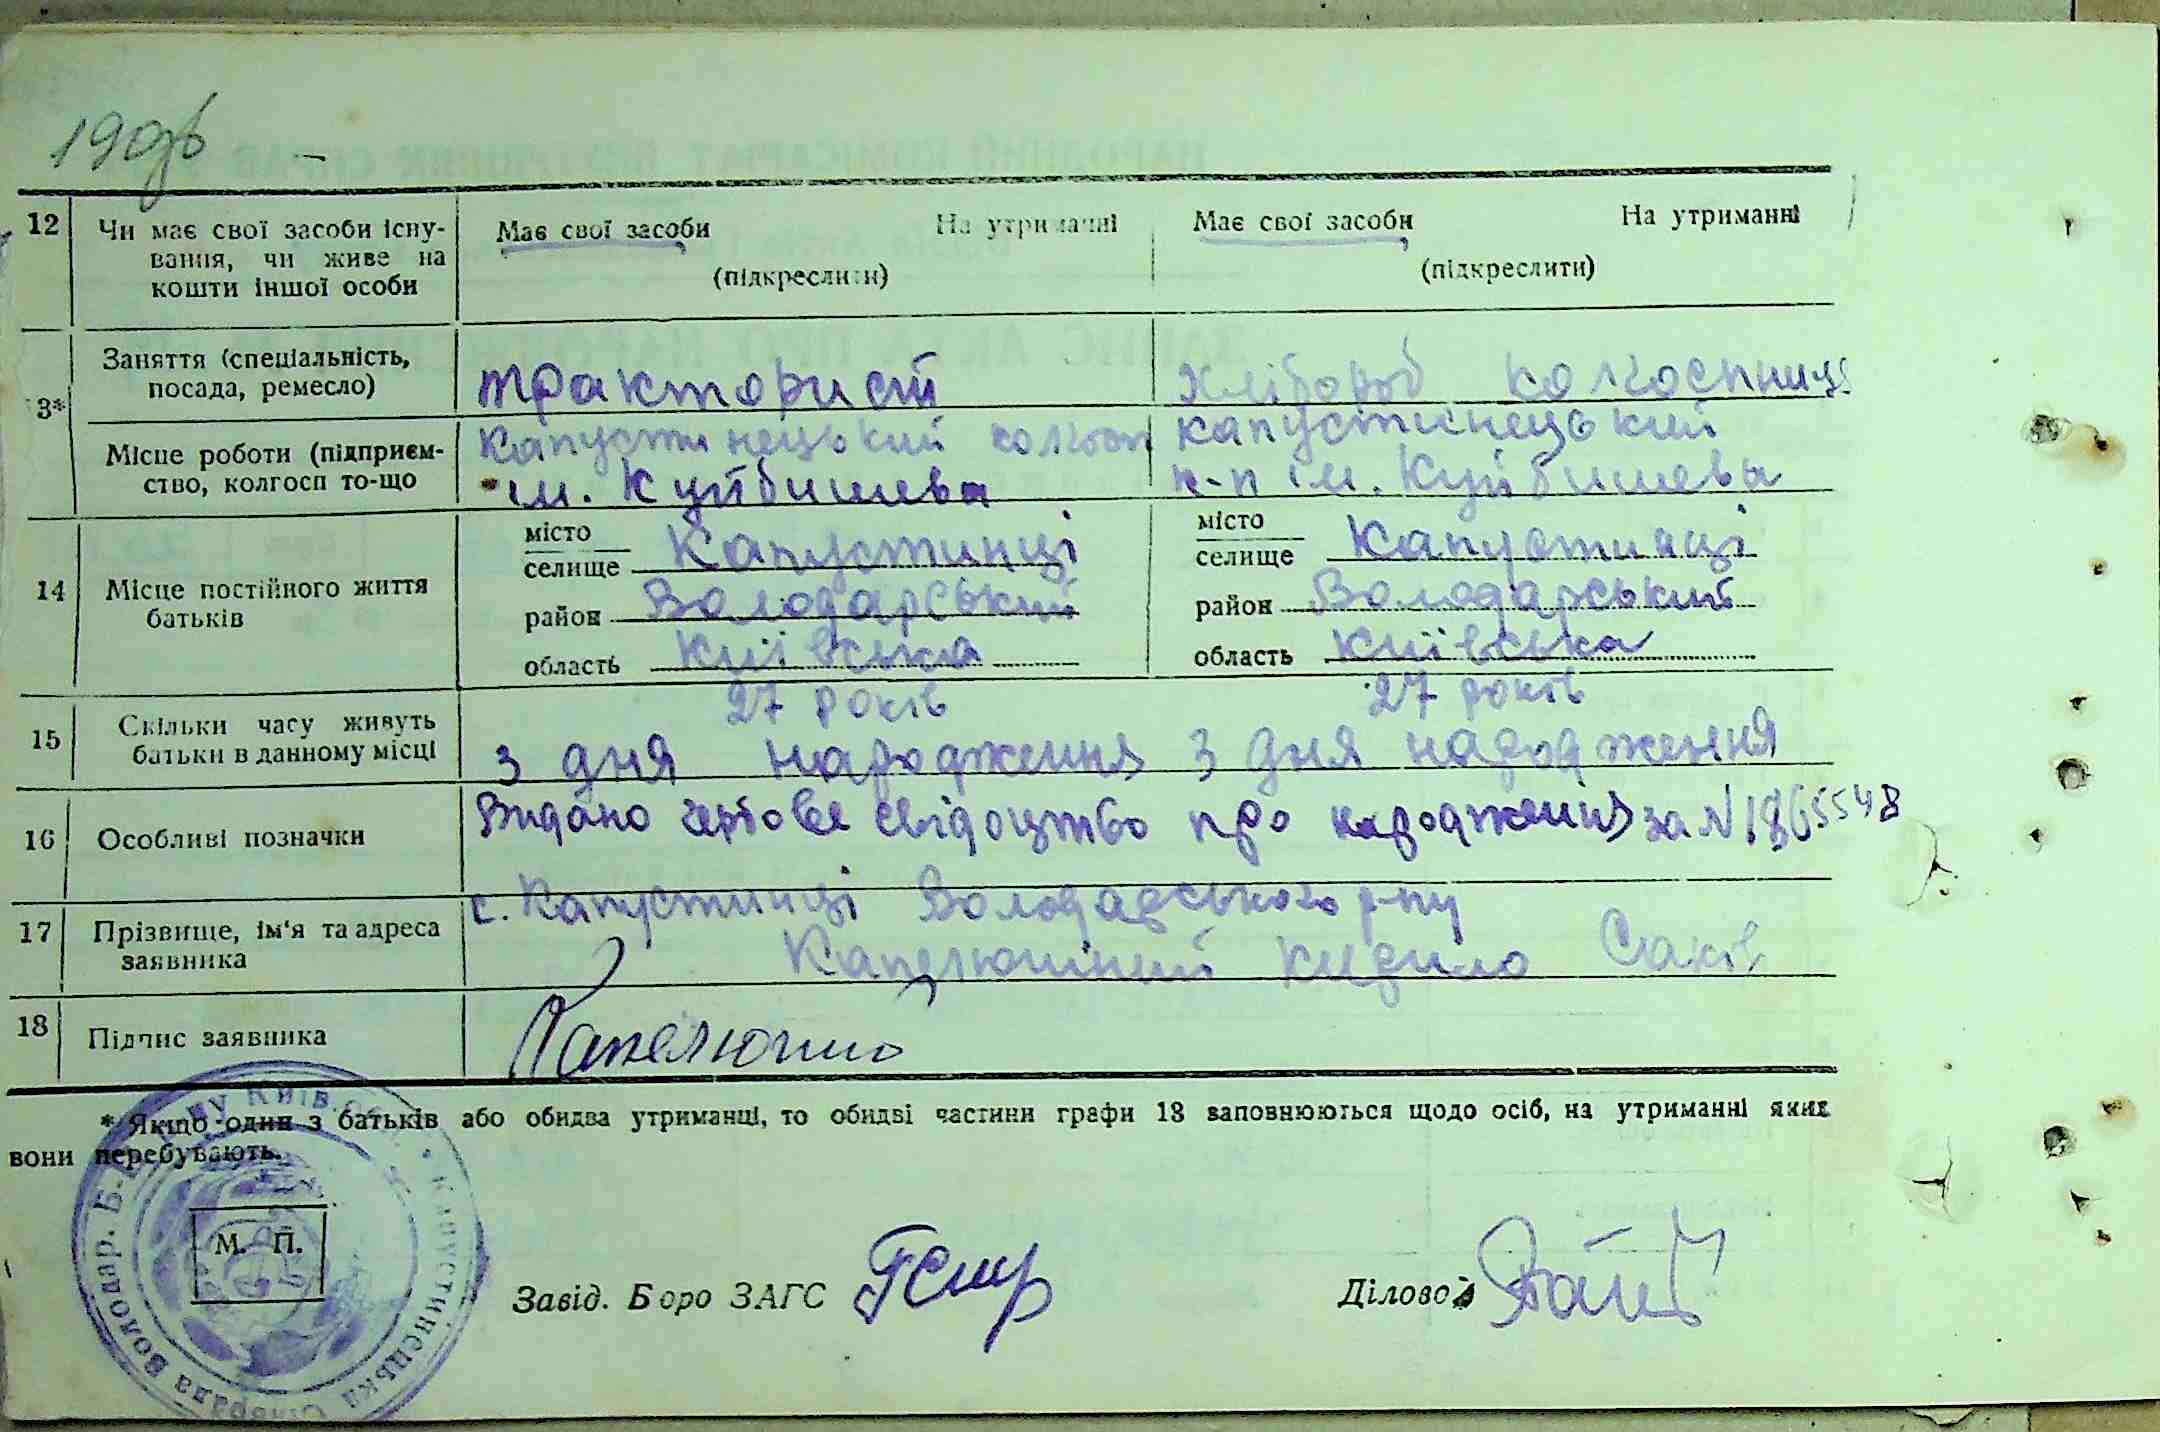 190зв
12 Чи має свої засоби існу- Має свої засоби На утриманні Має свої засоби На утриманні
вання, чи живе на (підкреслити) (підкреслити)
кошти іншої особи
3* Заняття (спеціальність, тракторист Хлібороб колгоспниця
посада, ремесло)
Місце роботи (підприєм- Капустинецький колгосп капустинецький
ство, колгосп то-що им. Куйбишева к-п ім. Куйбишева
14 Місце постійного життя батьків місто селище Капустинці місто селище Капустинці
район Володарський район Володарський
область Київська область Київська
27 років 27 років
15 Скільки часу живуть
батьки в данному місці з дня народження з дня народження
16 Особливі позначки Видано гербове свідоцтво про народження за N 1865548
17 Прізвище, ім'я та адреса с. Капустинці Володарського р-ну
заявника Капелюшний Кирило
18 Підпис заявника
* Якщо один з батьків або обидва утриманці, то обидві частини графи 13 заповнюються щодо осіб, на утриманні яких
вони перебувають.
М. П.
Завід. Боро ЗАГС Діловод